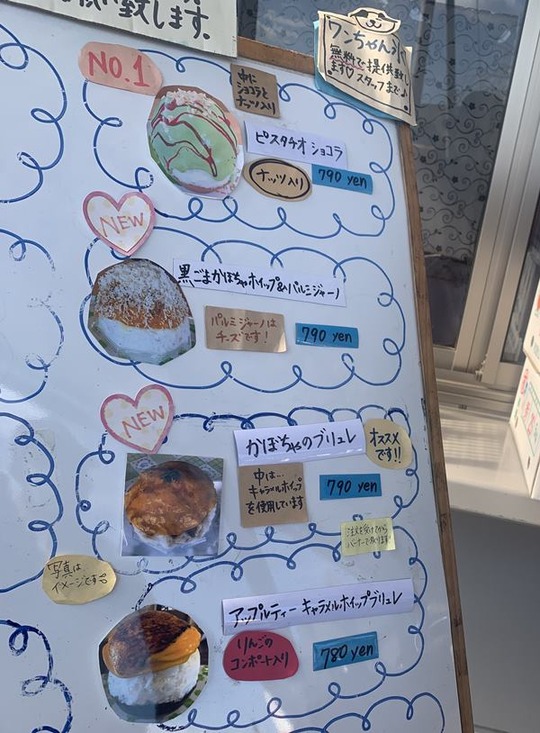 致します。
ワンちゃん
無料で提供致し
ます♡スタッフまで♪
NO.1
中に
ショコラと
ナッツ入り
ピスタチオ ショコラ
ナッツ入り
790 yen
NEW
黒ごまかぼちゃホイップ&パルミジャーノ
パルミジャーノは
チーズです!
790 yen
NEW
かぼちゃのブリュレ
オススメ
です!!
中は…
キャラメルホイップ
を使用しています
790 yen
注文を受けてから
バーナーで炙ります!
写真は
イメージです
アップルティー キャラメルホイップブリュレ
りんごの
コンポート入り
780 yen